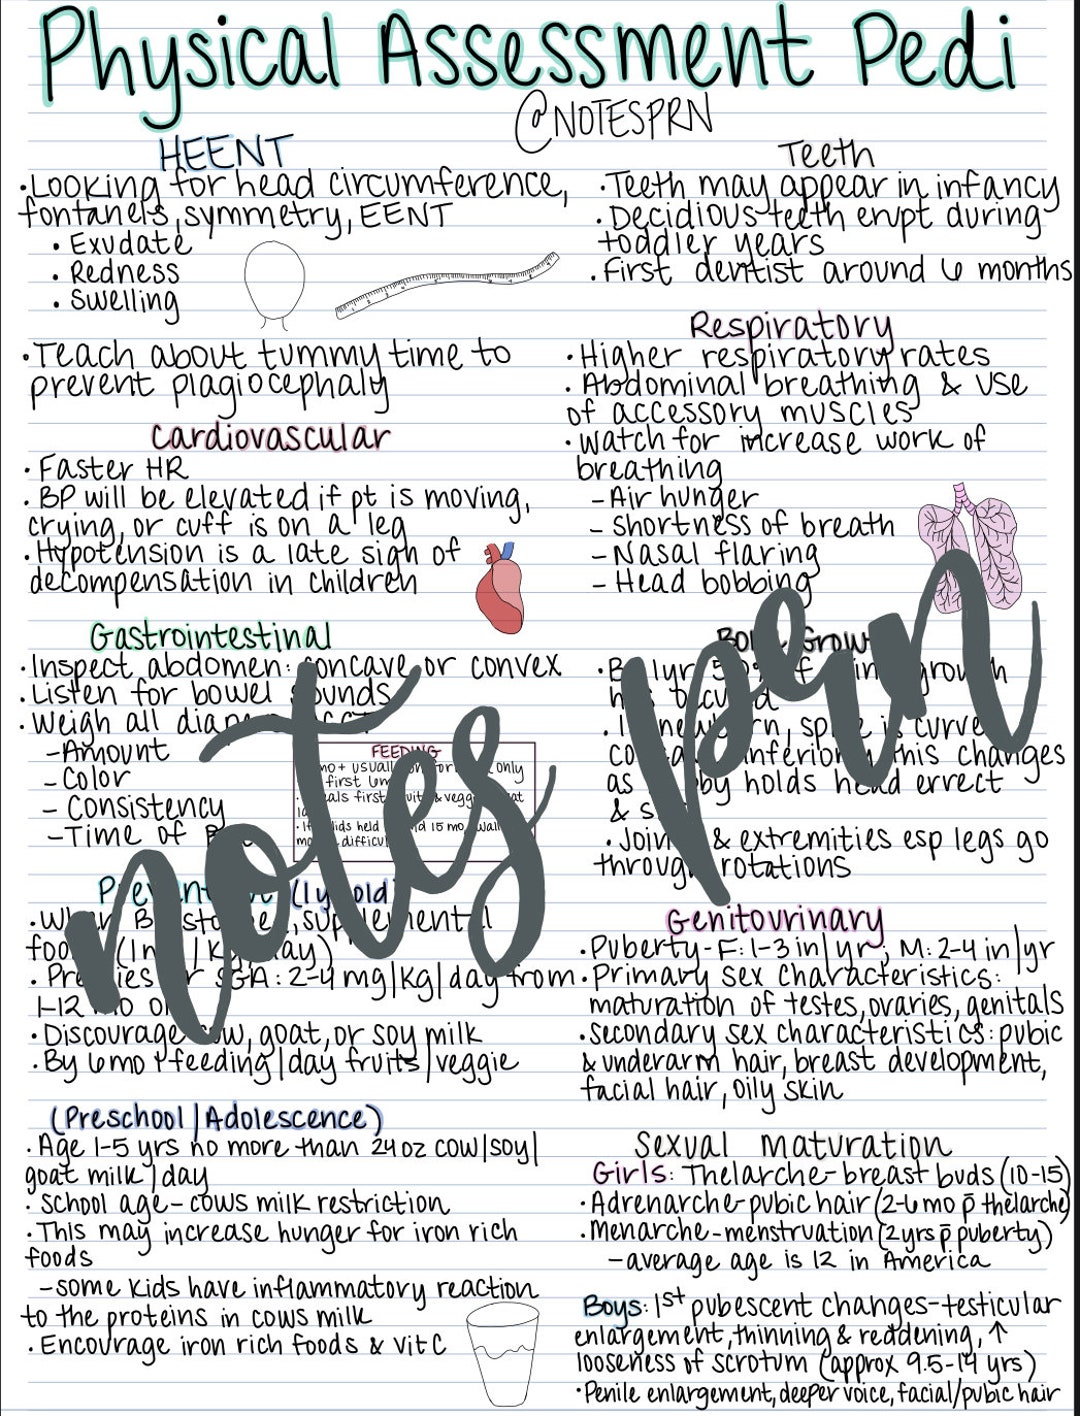 Physical Assessment Pedi
@NOTESPRN
HEENT
·Looking for head circumference,
fontanels, symmetry, EENT
· Exudate
· Redness
· Swelling
·Teach about tummy time to
prevent plagiocephaly
Cardiovascular
· Faster HR
· BP will be elevated if pt is moving,
crying, or cuff is on a leg
·Hypotension is a late sign of
decompensation in children
Gastrointestinal
·Inspect abdomen: concave or convex
·Listen for bowel sounds
·Weigh all
-Amount
-Color
- Consistency
-Time of
FEEDING
usually only
first
first & veggie
held 15 mo
(1yr old
supplemental
day)
SGA: 2-4 mg/kg/day from
1-12 mo
·Discourage cow, goat, or soy milk
·By 6mo 1 feeding/day fruits/veggie
(Preschool/Adolescence)
·Age 1-5 yrs no more than 24oz cow/soy/
goat milk/day
·School age- cows milk restriction
·This may increase hunger for iron rich
foods
-some kids have inflammatory reaction
to the proteins in cows milk
·Encourage iron rich foods & vit C
Teeth
·Teeth may appear in infancy
·Decidious teeth erupt during
toddler years
·First dentist around 6 months
Respiratory
·Higher respiratory rates
·Abdominal breathing & use
of accessory muscles
·Watch for increase work of
breathing
-Air hunger
- Shortness of breath
-Nasal flaring
- Head bobbing
Bone Growth
1yr growth
has occurred
·In newborn, spine is curved
inferiorly this changes
as baby holds head errect
&
·Joints & extremities esp legs go
through rotations
Genitourinary
·Puberty- F: 1-3 in/yr; M: 2-4 in/yr
·Primary sex characteristics:
maturation of testes, ovaries, genitals
·Secondary sex characteristics: pubic
& underarm hair, breast development,
facial hair, oily skin
Sexual Maturation
Girls: Thelarche- breast buds (10-15)
·Adrenarche-pubic hair (2-6mo p̄ thelarche)
·Menarche-menstruation (2yrs p̄ puberty)
-average age is 12 in America
Boys: 1st pubescent changes- testicular
enlargement, thinning & reddening, ↑
looseness of scrotum (approx 9.5-14 yrs)
·Penile enlargement, deeper voice, facial/pubic hair
notes prn